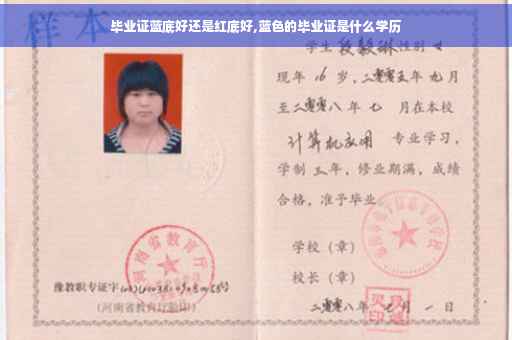 毕业证蓝底好还是红底好,蓝色的毕业证是什么学历
样本
学生段毅琳性别女
现年16岁,二零零五年九月
至二零零八年七月在本校
计算机应用专业学习,
学制三年,修业期满,成绩
合格,准予毕业
学校(章)
校长(章)
二零零八年七月一日
河南省教育厅
豫教职专证字
(河南省教育厅验印)